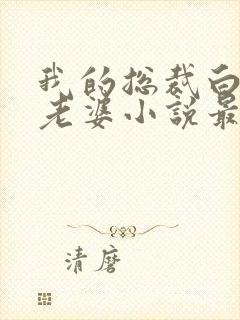 我的总裁白
老婆小説最
清磨